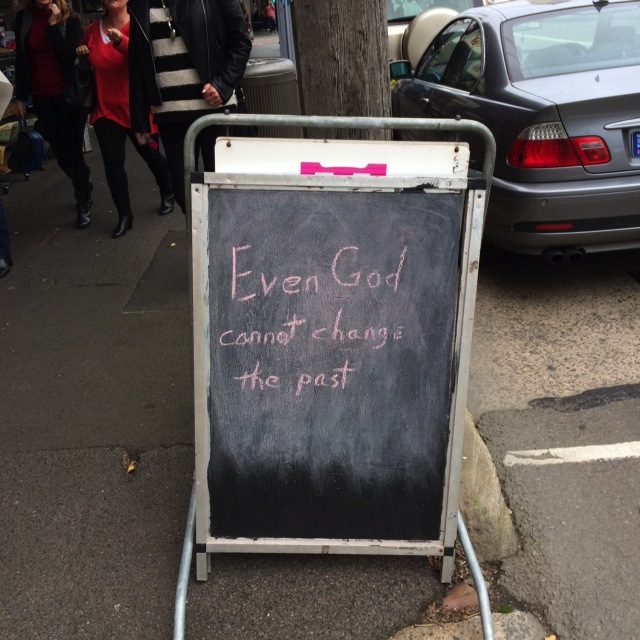 Even God
cannot change
the past